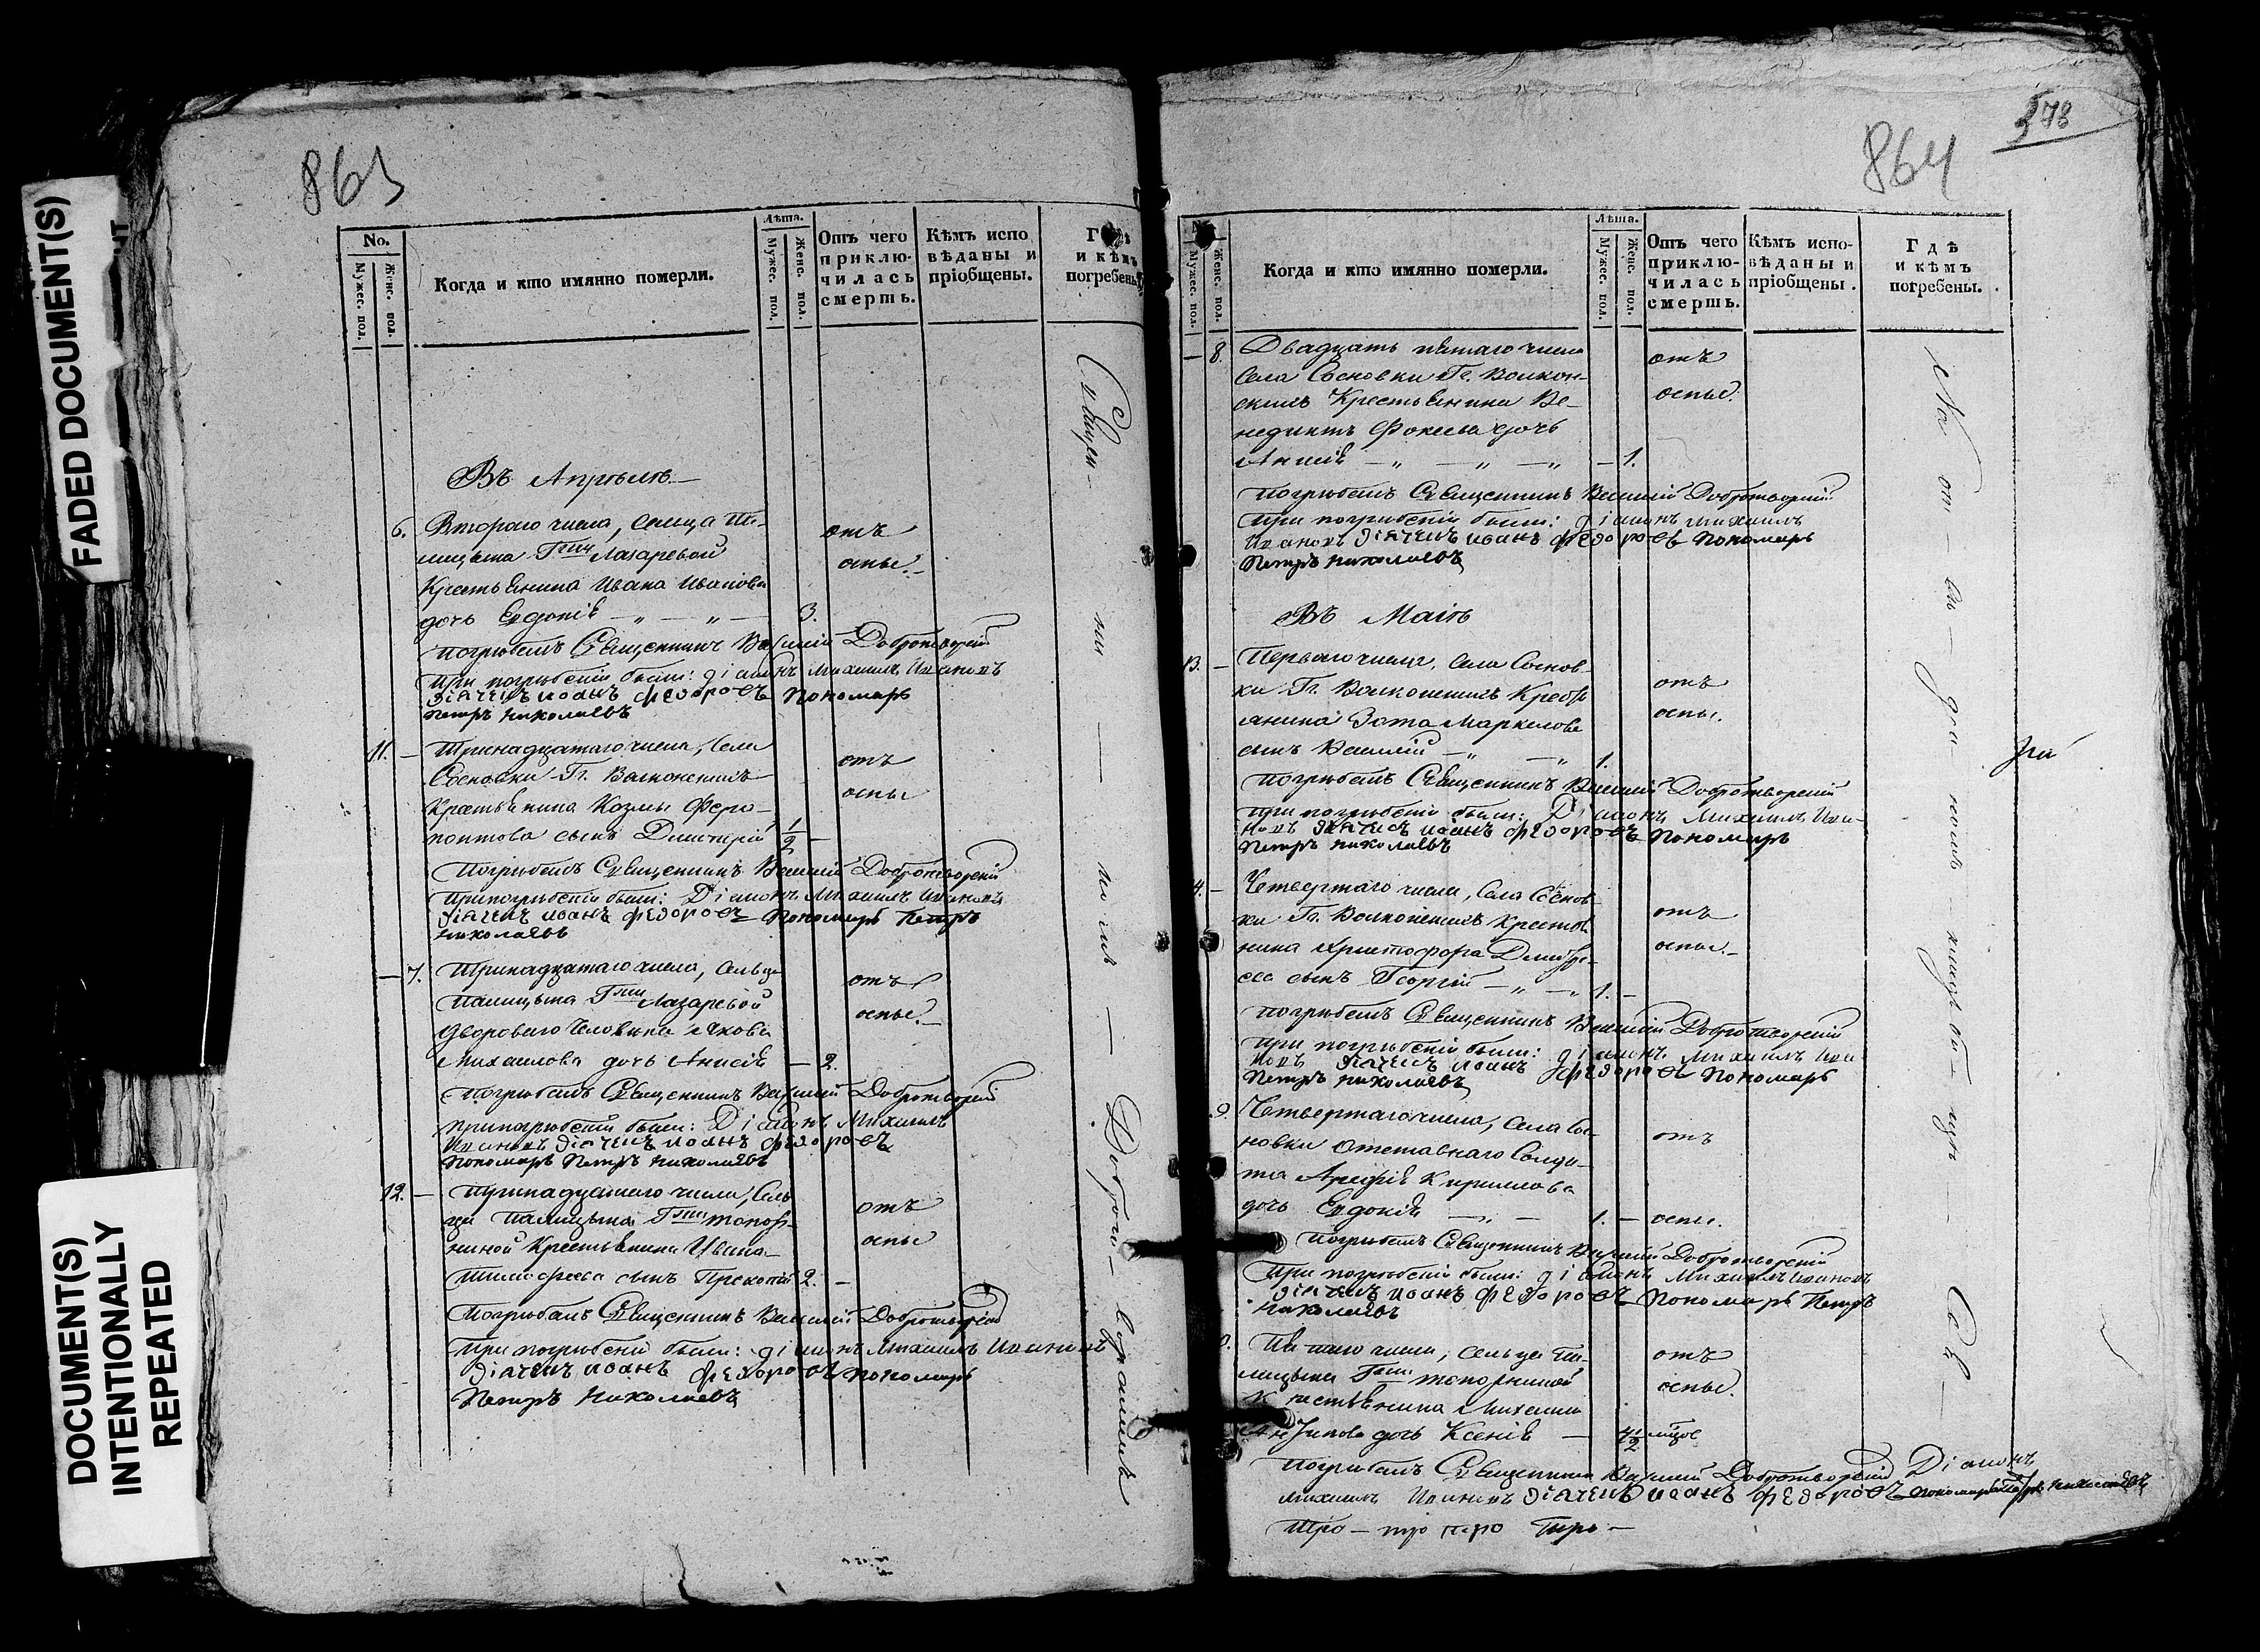 FADED DOCUMENT(S)
DOCUMENT(S)
INTENTIONALLY
REPEATED
863
No.
Мужес. пол.
Женс. пол.
Когда и кто имянно померли.
Лѣта.
Мужес. пол.
Женс. пол.
Отъ чего
приклю-
чилась
смерть.
Кѣмъ испо
вѣданы и
пріобщены.
и кѣмъ
погребены
Въ Апрѣлѣ.
6. Втораго числа, сельца Па-
лицына Г-жи Лазаревой отъ
Крестьянина Ивана Иванова оспы.
дочь Евдокія — „ — „ — 3.
Погребалъ Священникъ Василій Добротворскій
При погребеніи были: діаконъ Михаилъ Ивановъ
діячекъ иоанъ федоровъ Пономарь
Петръ Николаевъ
11. — Тринадцатаго числа, Села
Сосновки Гг. Волконскихъ отъ
Крестьянина Козмы Фера- оспы
понтова сынъ Димитрій 1/2 —
Погребалъ Священникъ Василій Добротворскій
При погребеніи были: Діаконъ Михаилъ Ивановъ
діячекъ иоанъ федоровъ Пономарь Петръ
Николаевъ
— 7. Тринадцатаго числа, Сельца
Палицына Г-жи Лазаревой отъ
двороваго человѣка Якова оспы.
Михаилова дочь Анисія — 2.
Погребалъ Священникъ Василій Добротворскій
При погребеніи были: Діаконъ Михаилъ
Ивановъ діячекъ иоанъ федоровъ
Пономарь Петръ Николаевъ
12. — Тринадцатаго числа, Сель
ца Палицына Г-жи Топор- отъ
ниной Крестьянина Ивана оспы
Тимофеева сынъ Прокопій 2. —
Погребалъ Священникъ Василій Добротворскій
При погребеніи были: діаконъ Михаилъ Ивановъ
діячекъ иоанъ федоровъ Пономарь
Петръ Николаевъ
864
578
Женс. пол.
Мужес. пол.
Когда и кто имянно померли.
Лѣта.
Мужес. пол.
Женс. пол.
Отъ чего
приклю-
чилась
смерть.
Кѣмъ испо-
вѣданы и
пріобщены.
Гдѣ
и кѣмъ
погребены.
— 8. Двадцать пятаго числа отъ
Села Сосновки Гг. Волкон- оспы.
скихъ Крестьянина Ве-
недиктъ Фокеева дочь
Анисія — „ — „ — „ — 1.
Погребалъ Священникъ Василій Добротворскій
При погребеніи были: діаконъ Михаилъ
Ивановъ діячекъ иоанъ федоровъ Пономарь
Петръ Николаевъ
Въ Маіѣ
13. — Перваго числа, Села Соснов-
ки Гг. Волконскихъ Кресть отъ
янина Зота Маркелова оспы.
сынъ Василій — „ — „ 1.
Погребалъ Священникъ Василій Добротворскій
При погребеніи были: Діаконъ Михаилъ Ива-
новъ діячекъ иоанъ федоровъ Пономарь
Петръ Николаевъ
4. — Четвертаго числа, Села Соснов
ки Гг. Волконскихъ Крестья отъ
нина Христофора Дмитрі- оспы.
ева сынъ Георгій — „ — „ 1. —
Погребалъ Священникъ Василій Добротворскій
При погребеніи были: діаконъ Михаилъ Ива
новъ діячекъ иоанъ федоровъ Пономарь
Петръ Николаевъ
9. Четвертаго числа, Села Сос-
новки отставнаго Солда- отъ
та Арефія Кириллова
дочь Евдокія — „ — 1. — оспы.
Погребалъ Священникъ Василій Добротворскій
При погребеніи были: діаконъ Михаилъ Ивановъ
діячекъ иоанъ федоровъ Пономарь Петръ
Николаевъ
0. Пятаго числа, Сельца Па- отъ
лицына Г-жи Топорниной оспы.
Крестьянина Михаила
дочь Ксенія —
Погребалъ Священникъ Василій Добротворскій Діаконъ
Михаилъ Ивановъ діячекъ иоанъ федоровъ Пономарь Петръ Николаевъ
Священ — никъ — Василій — Доброт — ворскій
На от — ве — ден — номъ — кладби — щѣ —